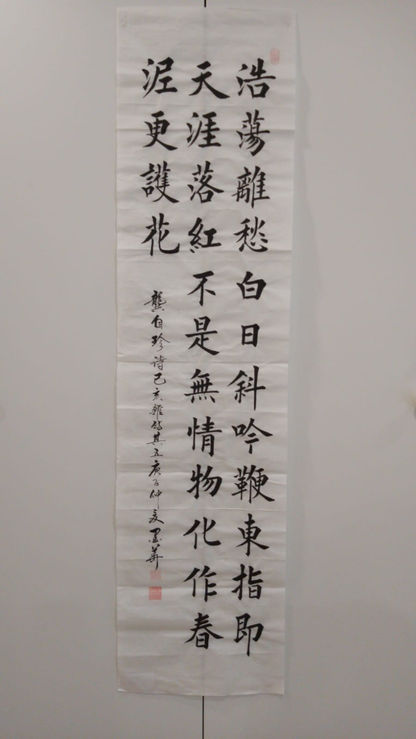 浩蕩離愁白日斜吟鞭東指即
天涯落紅不是無情物化作春
泥更護花
龔自珍詩己亥雜詩其五庚子仲夏墨華